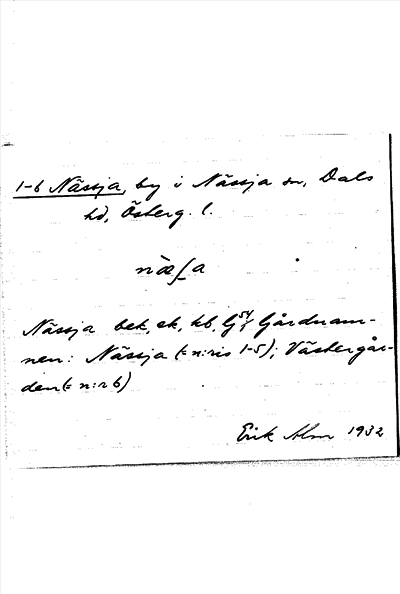 1-6 Nässja, by i Nässja sn, Dals
hd, Österg. l.
næ̀ʃa
Nässja bek, ek, kb, Gårdnam-
nen: Nässja (= n:ris 1-5); Västergår-
den (= n:r 6)
Erik Alm 1932